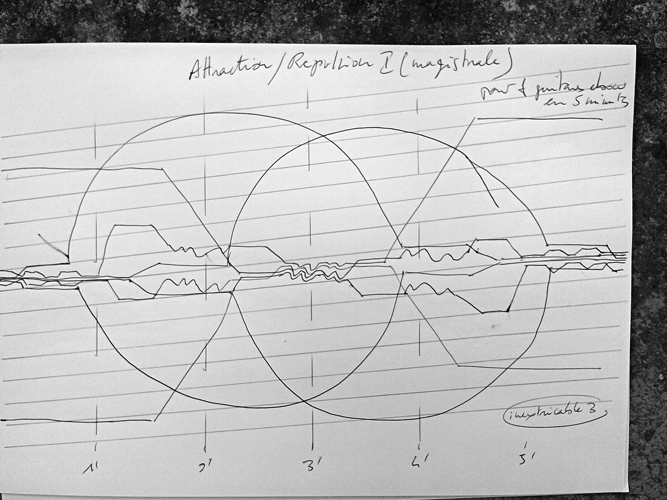 Attraction / Repulsion I (magistrale)
pour 4 guitares
en 5 minutes
inextricable 3
1' 2' 3' 4' 5'